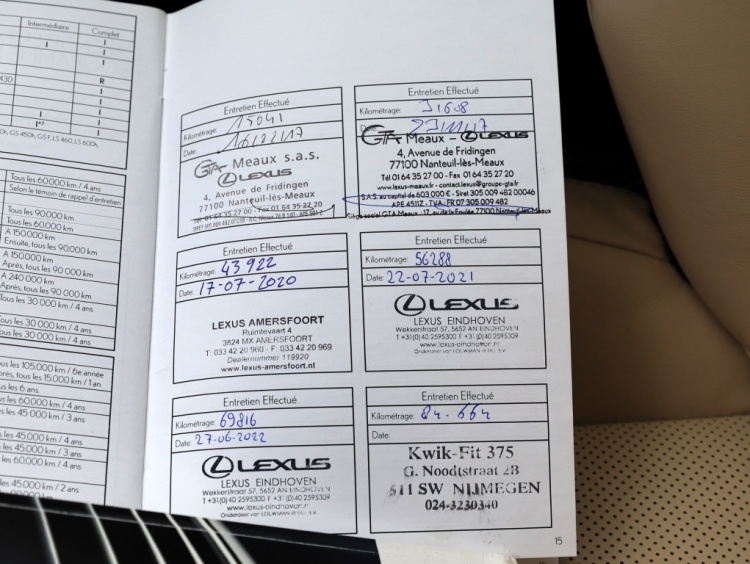 Intermédiaire Complet
I I
I
I
R
430 I
I
I
I
I*⁷ I
0h, GS 450h, GS F, LS 460, LS 600h,
Tous les 60 000 km / 4 ans
Selon le témoin de rappel d'entretien
Tous les 90 000 km
Tous les 60 000 km
A 150 000 km
Ensuite, tous les 90 000 km
A 150 000 km
Après, tous les 90 000 km
A 240 000 km
Après, tous les 90 000 km
ous les 30 000 km / 4 ans
ous les 30 000 km / 4 ans
ous les 30 000 km / 4 ans
ous les 105.000 km / 6e année
près, tous les 15.000 km / 1 an
us les 6 ans.
us les 60.000 km / 4 ans
us les 45 000 km / 3 ans
les 45.000 km / 4 ans
les 45.000 km / 3 ans
les 60.000 km / 4 ans
les 45.000 km / 2 ans
Entretien Effectué
Kilométrage: 15041
Date:
GTA Meaux s.a.s.
LEXUS
4, Avenue de Fridingen
77100 Nanteuil-lès-Meaux
Tél 01 64 35 27 00 - Fax 01 64 35 27 20
Entretien Effectué
Kilométrage:
GTA Meaux - LEXUS
4, Avenue de Fridingen
77100 Nanteuil-lès-Meaux
Tél 01 64 35 27 00 - Fax 01 64 35 27 20
www.lexus-meaux.fr - contact.lexus@groupe-gta.fr
S.A.S. au capital de 603.000 € - Siret 305 009 482 00046
APE 4511Z - TVA: FR 07 305 009 482
Siège social GTA Meaux : 17, av de la Foulée 77100 Nanteuil-lès-Meaux
Entretien Effectué
Kilométrage: 43 922
Date: 17-07-2020
LEXUS AMERSFOORT
Ruimtevaart 4
3824 MX AMERSFOORT
T: 033 42 20 960 - F: 033 42 20 969
Dealernummer 119920
www.lexus-amersfoort.nl
Entretien Effectué
Kilométrage: 56288
Date: 22-07-2021
LEXUS
LEXUS EINDHOVEN
Wekkerstraat 57, 5652 AN EINDHOVEN
T +31(0)40 2595300 F +31(0)40 2595309
www.lexus-eindhoven.nl
Onderdeel van LOUWMAN
Entretien Effectué
Kilométrage: 69816
Date: 27-06-2022
LEXUS
LEXUS EINDHOVEN
Wekkerstraat 57, 5652 AN EINDHOVEN
T +31(0)40 2595300 F +31(0)40 2595309
www.lexus-eindhoven.nl
Onderdeel van LOUWMAN
Entretien Effectué
Kilométrage: 84-664
Date:
Kwik-Fit 375
G. Noodtstraat 2B
511 SW NIJMEGEN
024-3230340
15